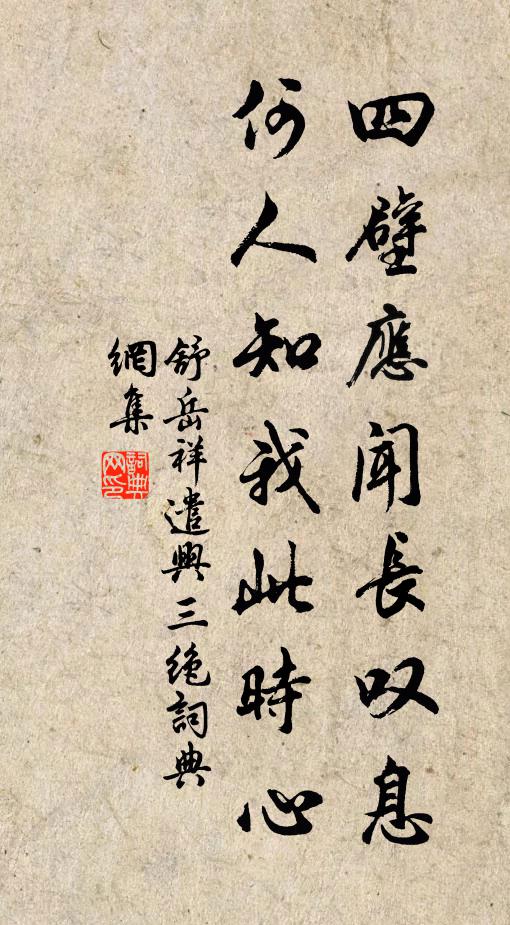 四壁應聞長叹息
何人知我此時心
舒岳祥遣興三绝詞典
網集
詞典
网印